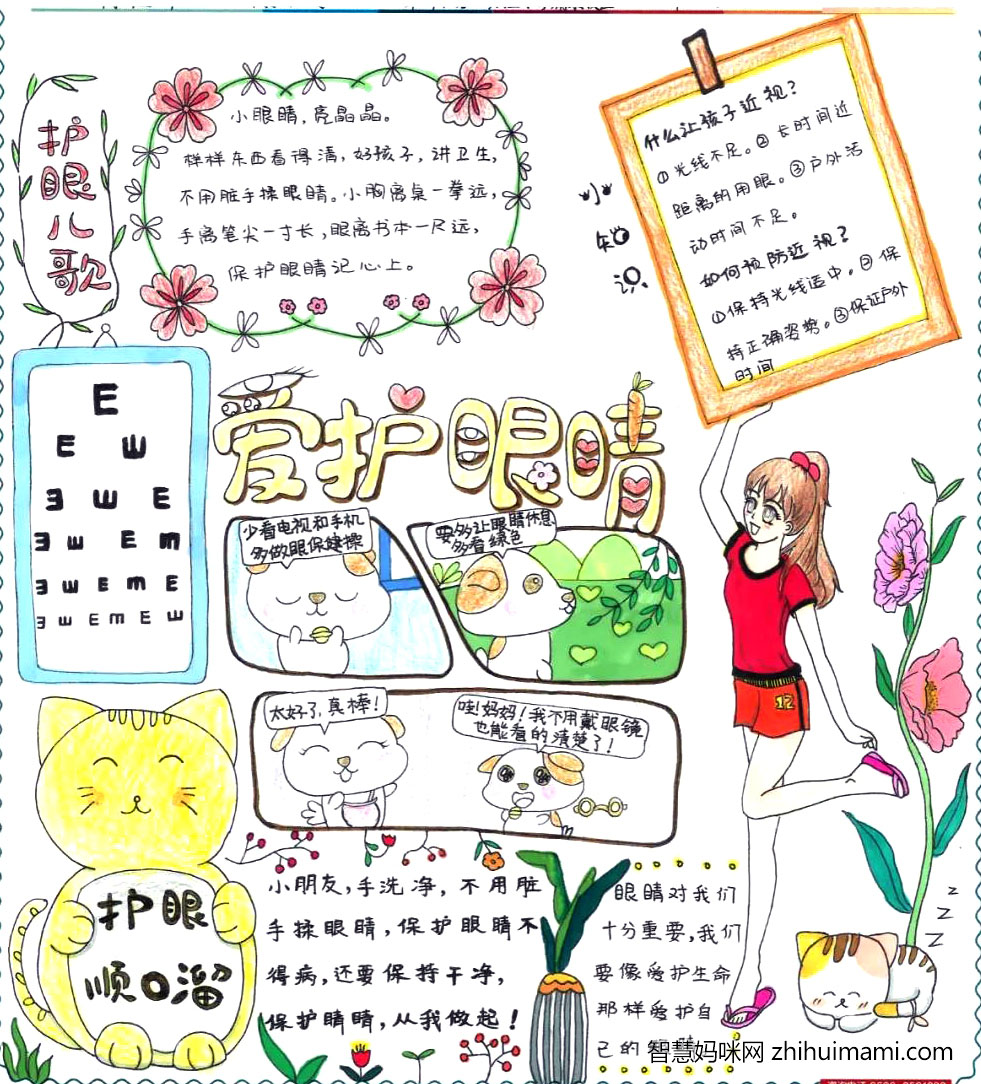 护眼儿歌
小眼睛，亮晶晶。
样样东西看得清，好孩子，讲卫生，
不用脏手揉眼睛。小胸离桌一拳远，
手离笔尖一寸长，眼离书本一尺远，
保护眼睛记心上。
小
知
识
什么让孩子近视？
①光线不足。②长时间近
距离的用眼。③户外活
动时间不足。
如何预防近视？
①保持光线适中。②保
持正确姿势。③保证户外
时间
E
E W
Ǝ W E
Ǝ W E M
Ǝ W E M E
Ǝ W E M E W
爱护眼睛
少看电视和手机
多做眼保健操
要多让眼睛休息
多看绿色
太好了，真棒！
哇！妈妈！我不用戴眼镜
也能看的清楚了！
12
护眼
顺口溜
小朋友，手洗净，不用脏
手揉眼睛，保护眼睛不
得病，还要保持干净，
保护睛睛，从我做起！
眼睛对我们
十分重要，我们
要像爱护生命
那样爱护自
己的
z
z
z
智慧妈咪网 zhihuimami.com